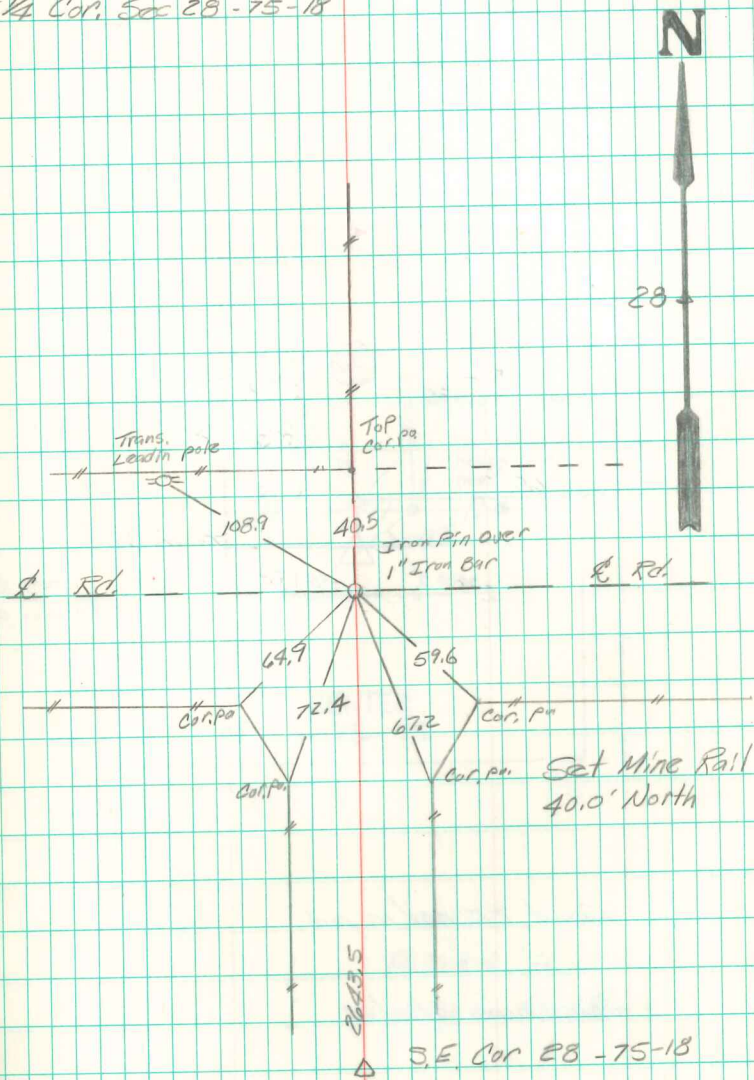 1/4 Cor. Sec 28-75-18
N
28
Trans.
Leadin pole
Top
Cor. po
108.9
40.5
Iron Pin Over
1" Iron Bar
℄ Rd.
℄ Rd.
64.9
59.6
72.4
67.2
Cor. po
Cor. pn
Cor. Po.
Cor. pn.
Set Mine Rail
40.0' North
2643.5
S.E. Cor 28-75-18